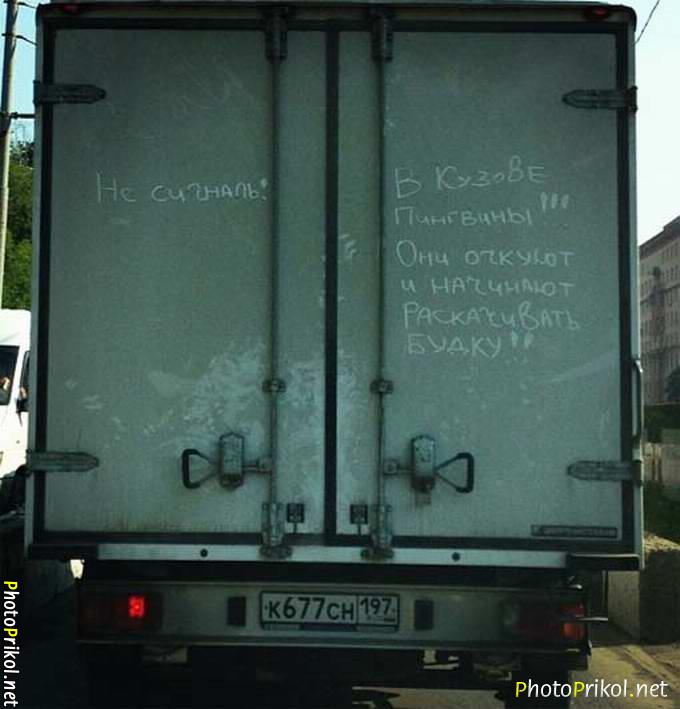 Не сигналь!
В КузоВЕ
Пингвины!!!
Они очкуют
и начинают
РАСКАЧИВАТЬ
БУДКУ!!
К677СН 197
PhotoPrikol.net
PhotoPrikol.net